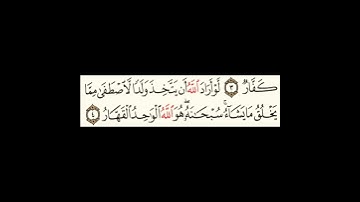 كَفَّارٌ ٣ لَّوْ أَرَادَ ٱللَّهُ أَن يَتَّخِذَ وَلَدًا لَّٱصْطَفَىٰ مِمَّا
يَخْلُقُ مَا يَشَآءُ ۚ سُبْحَـٰنَهُۥ ۖ هُوَ ٱللَّهُ ٱلْوَٰحِدُ ٱلْقَهَّارُ ٤